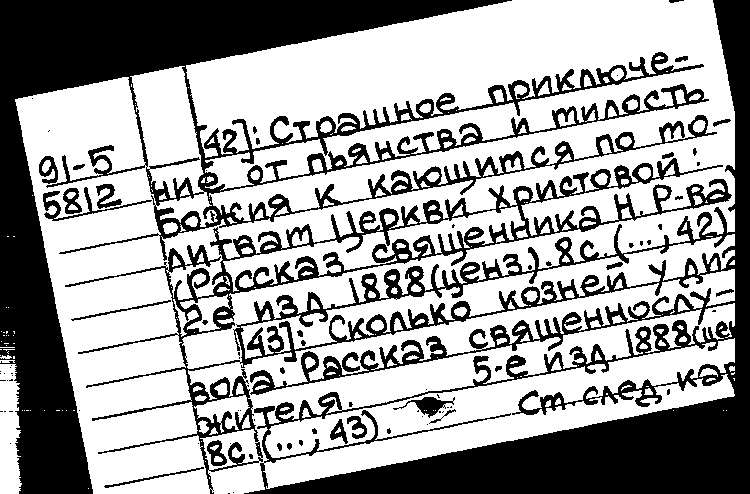 91-5
5812
[42]: Страшное приключе-
ние от пьянства и милость
Божия к кающимся по мо-
литвам Церкви Христовой:
(Рассказ священника Н. Р-ва)
2-е изд. 1888 (ценз.). 8 с. (...; 42)
[43]: Сколько козней у дья
вола: Рассказ священнослу-
жителя. 5-е изд. 1888 (цен
8 с. (...; 43). См. след. кар